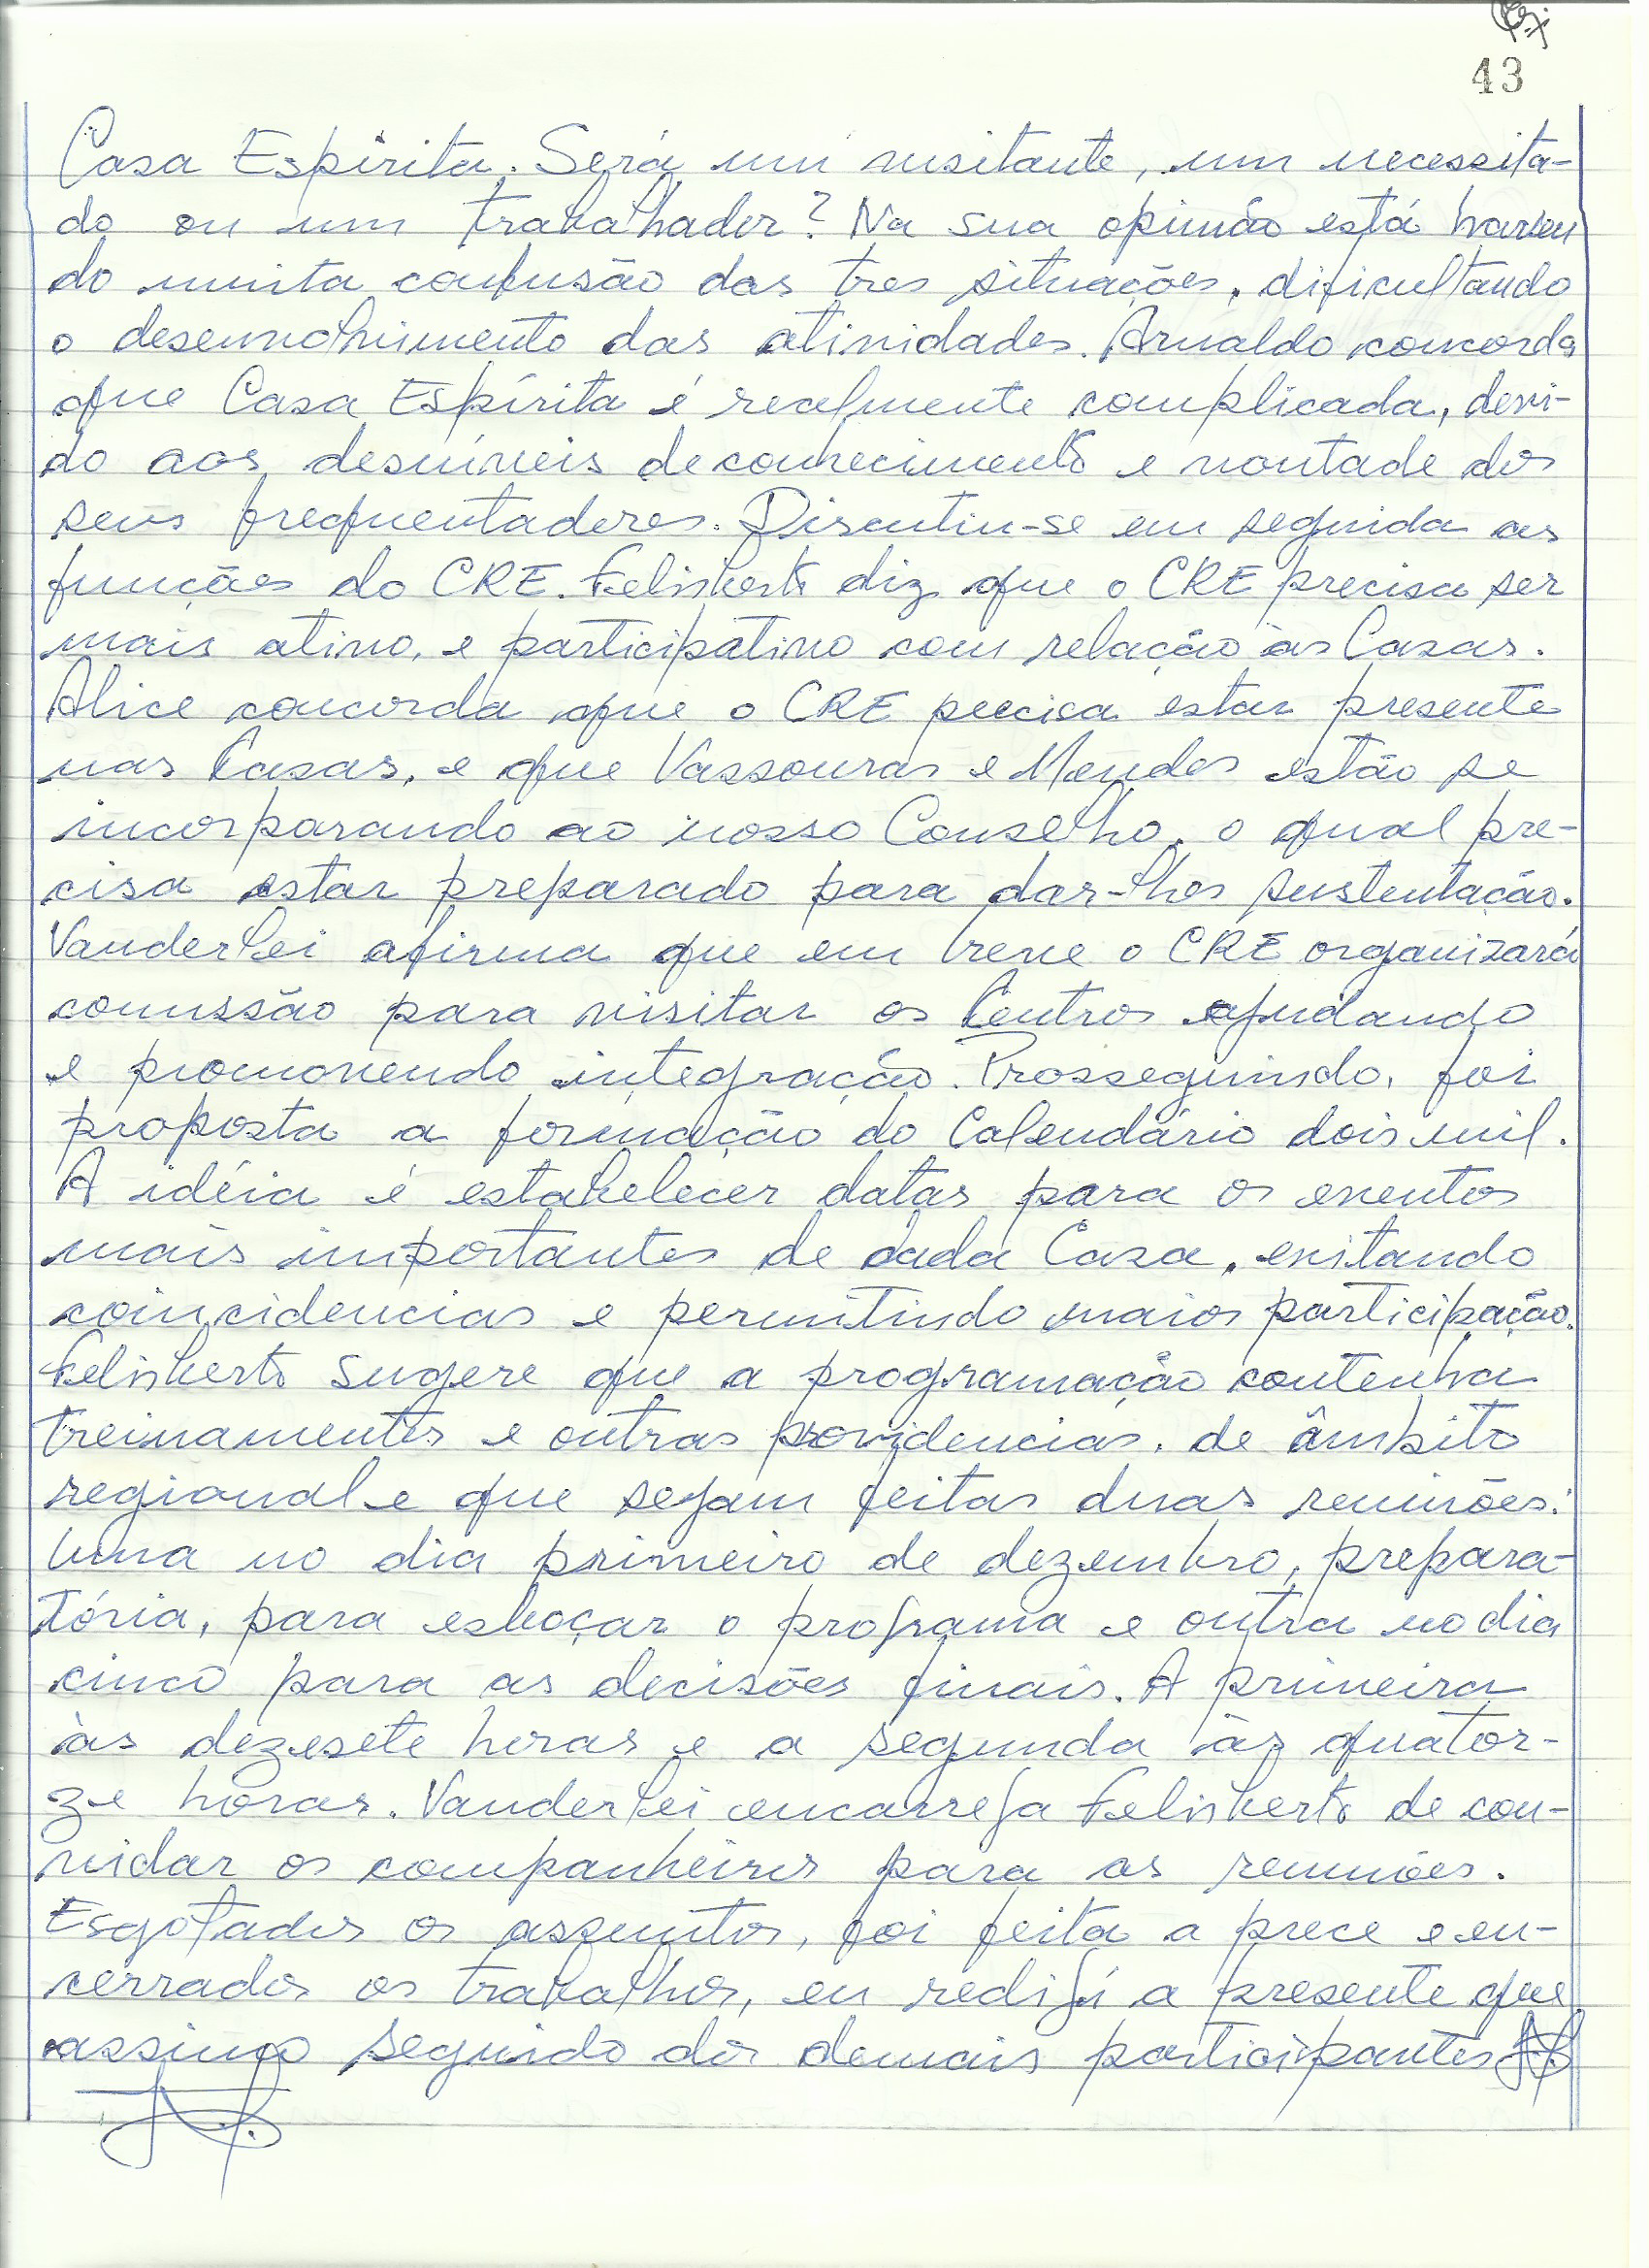 43
Casa Espírita. Será um visitante, um necessita-
do ou um trabalhador? Na sua opinião está haven
do muita confusão das tres situações, dificultando
o desenvolvimento das atividades. Arnaldo concorda
que Casa Espírita é realmente complicada, devi-
do aos desníveis de conhecimento e vontade dos
seus frequentadores. Discutiu-se em seguida as
funções do CRE. Felisberto diz que o CRE precisa ser
mais ativo, e participativo com relação às Casas.
Alice concorda que o CRE precisa estar presente
nas Casas, e que Vassouras e Mendes estão se
incorporando ao nosso Conselho, o qual pre-
cisa estar preparado para dar-lhes sustentação.
Vanderlei afirma que em breve o CRE organizará
comissão para visitar os Centros ajudando
e promovendo integração. Prosseguindo, foi
proposta a formação do Calendário dois mil.
A idéia é estabelecer datas para os eventos
mais importantes de cada Casa, evitando
coincidencias e permitindo maior participação.
Felisberto sugere que a programação contenha
treinamentos e outras providencias, de âmbito
regional e que sejam feitas duas reuniões:
Uma no dia primeiro de dezembro, prepara-
tória, para esboçar o programa e outra no dia
cinco para as decisões finais. A primeira
às dezesete horas e a segunda às quator-
ze horas. Vanderlei encarrega Felisberto de con-
vidar os companheiros para as reuniões.
Esgotados os assuntos, foi feita a prece e en-
cerrados os trabalhos, eu redigí a presente que
assino seguido dos demais participantes